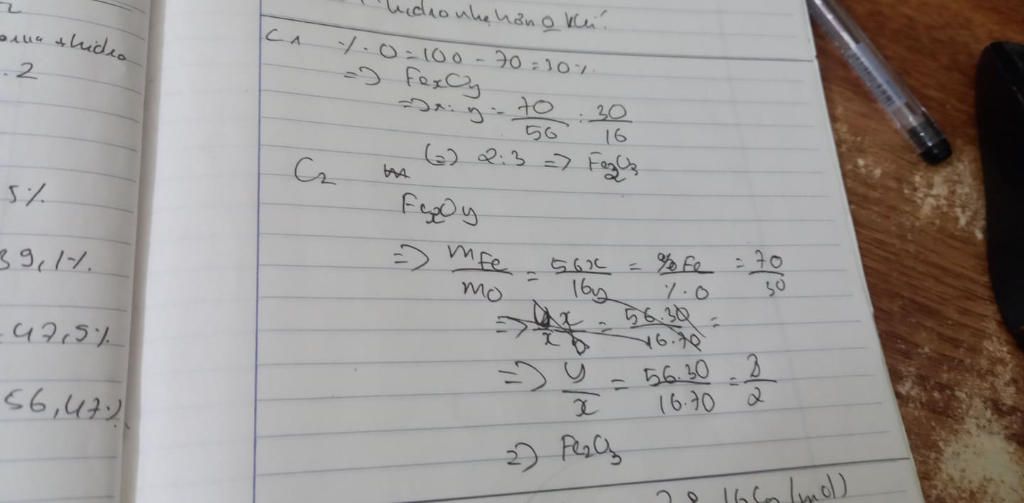 2
+ hidro
.2
5%
39,1%
47,5%
56,47%
hidro nhẹ hơn khí
C1 %.O = 100 - 70 = 30%
=> FexOy
=> x:y = 70/56 : 30/16
(=) 2:3 => Fe2O3
C2
FexOy
=> mFe/mO = 56x/16y = %Fe/%.O = 70/30
=> x/x = 56.30/16.70 =
=> y/x = 56.30/16.70 = 3/2
=> Fe2O3
(g/mol)